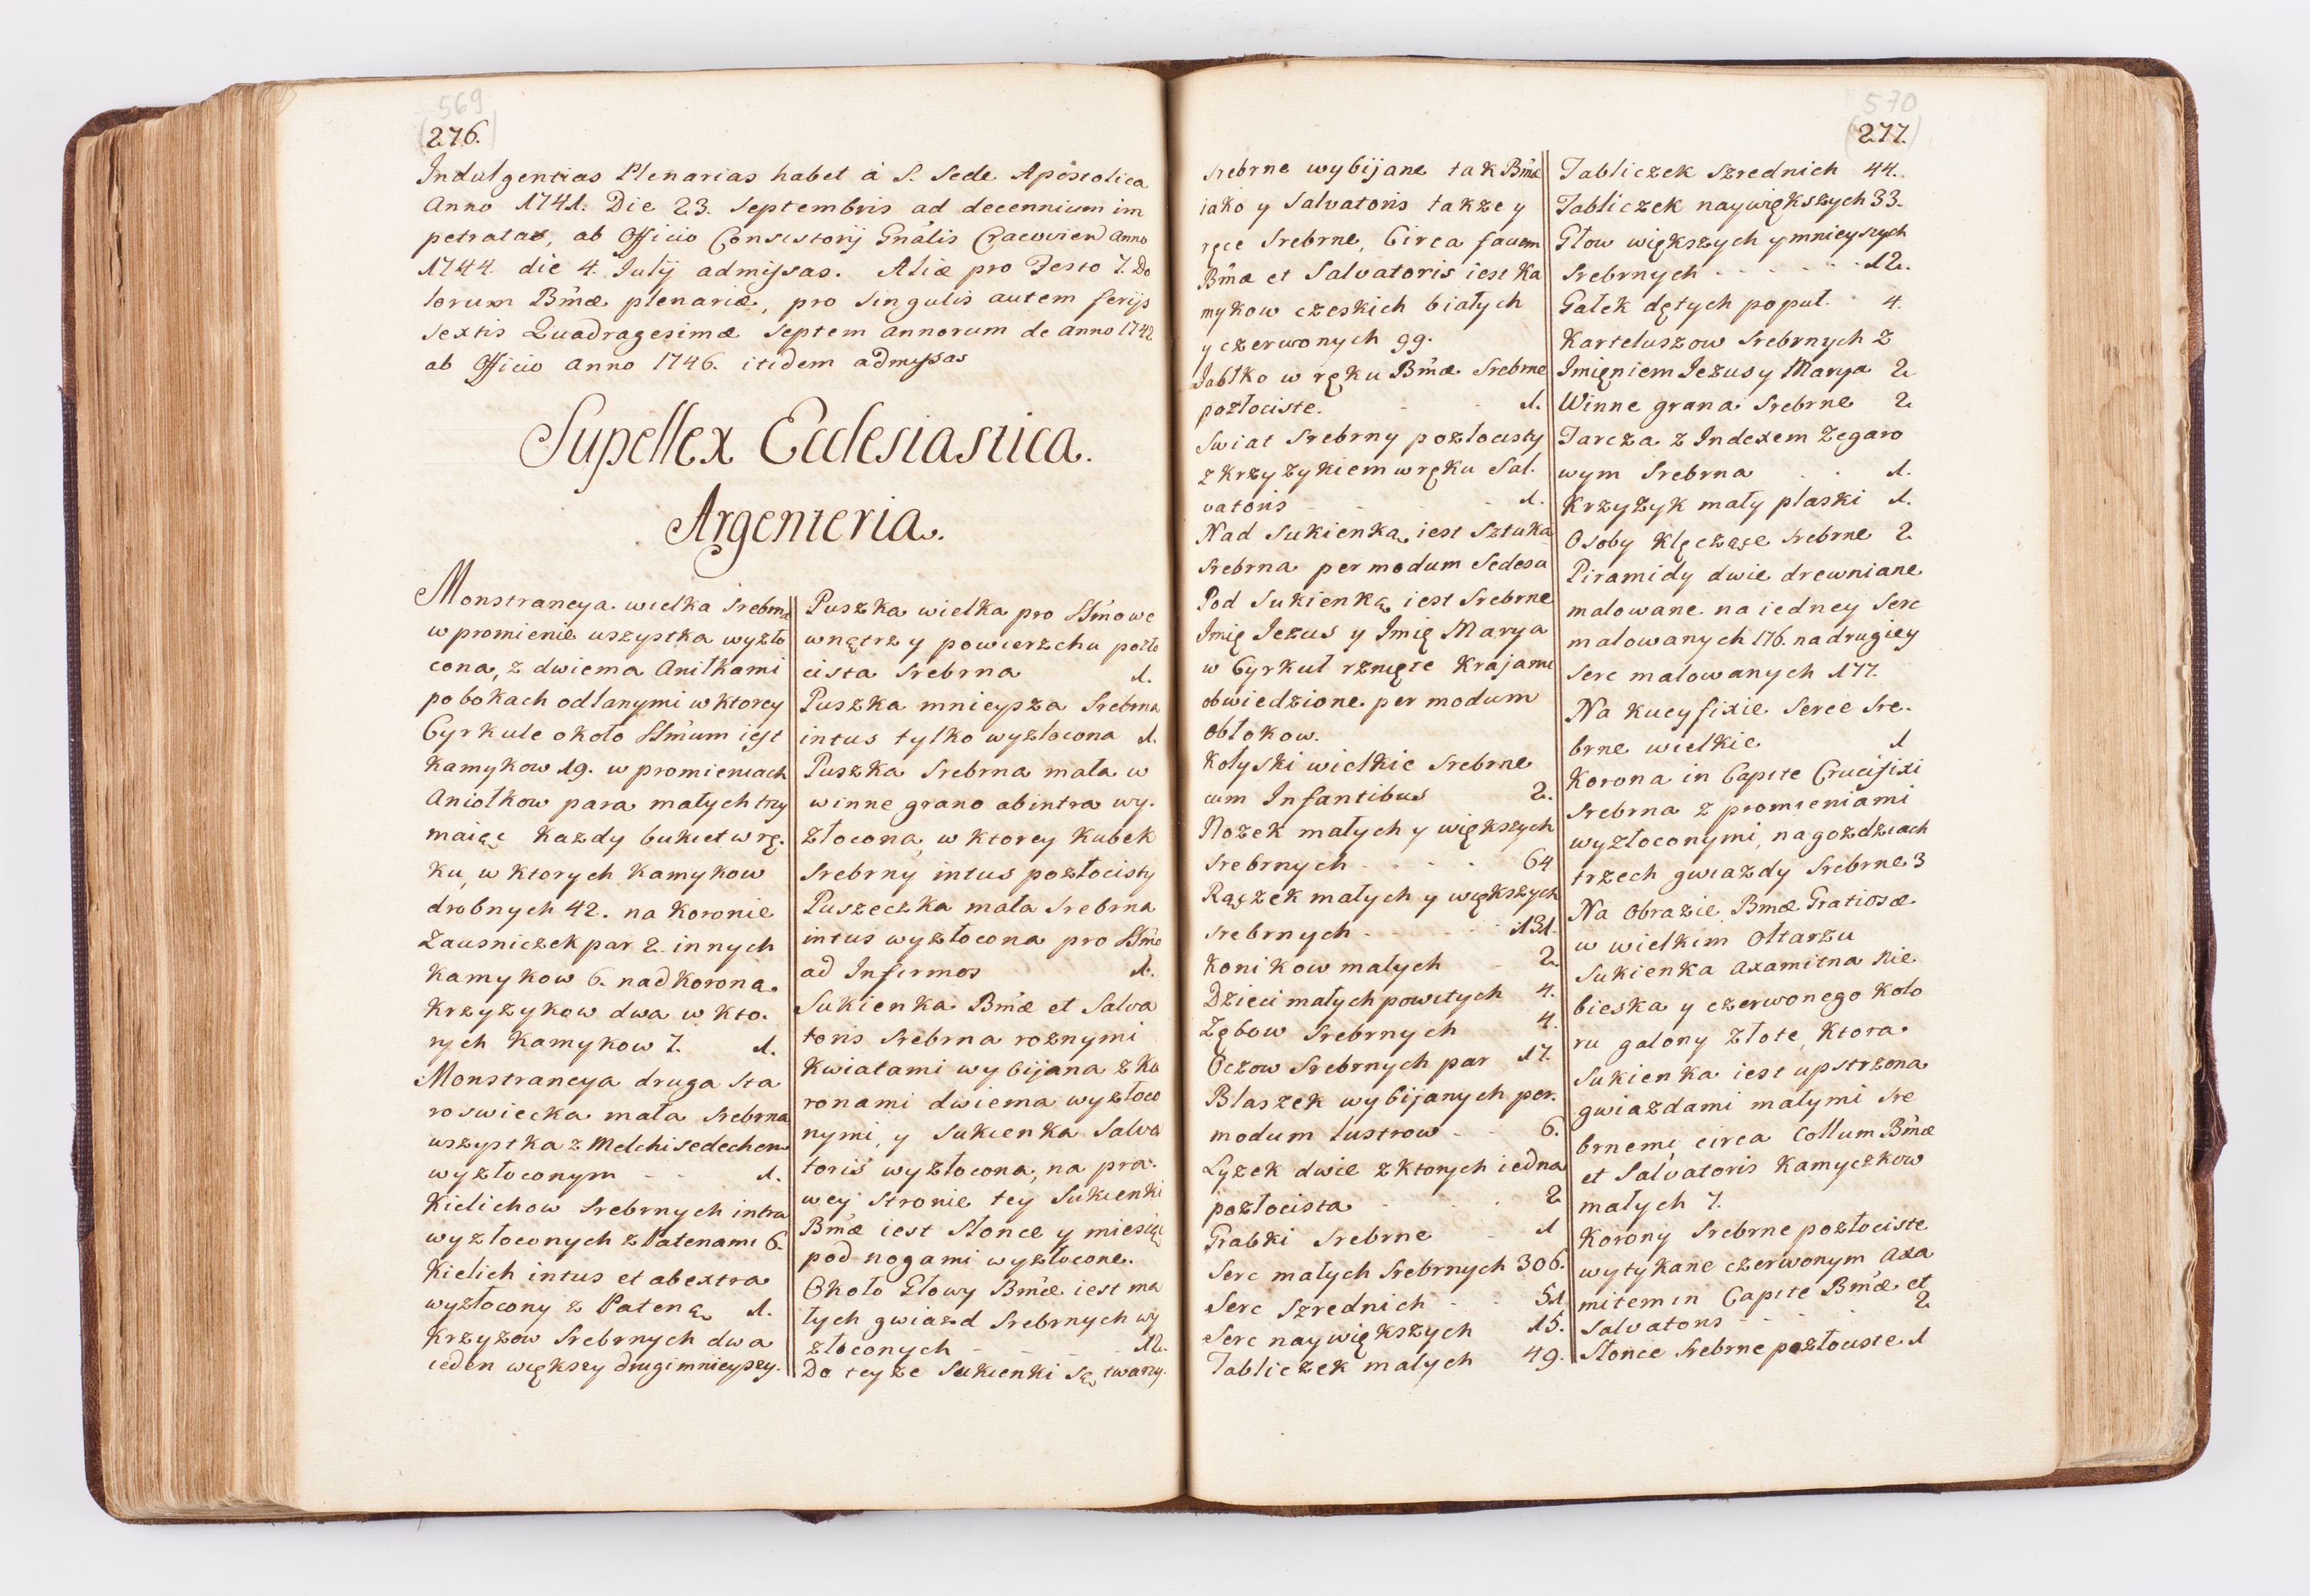 569
(276.)
Indulgentias Plenarias habet à S. Sede Apostolica
Anno 1741. Die 23. Septembris ad decennium im
petratas, ab Officio Consistorij Gnãlis Cracovien anno
1744. die 4. Julij admissas. Aliæ pro Festo 7. Do
lorum Bmæ plenariæ, pro singulis autem ferijs
sextis Quadragesimæ septem annorum de anno 1742
ab Officio anno 1746. itidem admissas
Supellex Ecclesiastica.
Argenteria.
Monstrancya wielka srebrna
w promienie wszystka wyzło
cona, z dwiema Aniłkami
po bokach odlanymi w ktorey
Cyrkule około SSmum iest
Kamykow 19. w promieniach
Aniołkow para małych trzy
maiąc Kazdy bukiet w rę.
ku, w ktorych Kamykow
drobnych 42. na Koronie
Zausniczek par 2. innych
Kamykow 6. nad Koroną.
Krzyzykow dwa w kto.
rych Kamykow 7. 1.
Monstrancya druga sta
roswiecka mała srebrna
wszystka z Melchisedechem
wyzłoconym - - 1.
Kielichow srebrnych intra
wyzłoconych z Patenami 6.
Kielich intus et ab extra
wyzłocony z Pateną 1.
Krzyzow srebrnych dwa
ieden większy drugi mnieyszy.
Puszka wielka pro SSmo we
wnątrz y powierzchu pozło
cista srebrna 1.
Puszka mnieysza srebrna
intus tylko wyzłocona 1.
Puszka srebrna mała w
winne grano ab intra wy.
złocona, w ktorey Kubek
srebrny intus pozłocisty
Puszeczka mała srebrna
intus wyzłocona pro SSmo
ad Infirmos 1.
Sukienka Bmæ et Salva
toris srebrna roznymi
Kwiatami wybijana z Ko
ronami dwiema wyzłoco
nymi, y sukienka Salva
toris wyzłocona, na pra.
wey stronie tey Sukienki
Bmæ iest Słonce y miesiąc
pod nogami wyzłocone.
Około Głowy Bmæ iest ma
łych gwiazd srebrnych wy
złoconych - - - - 12.
Do teyze Sukienki są twarzy.
570
(277.)
srebrne wybijane tak Bmæ
iako y Salvatoris takze y
ręce srebrne, Circa fauem
Bmæ et Salvatoris iest Ka
mykow czeskich białych
y czerwonych 99.
Jabłko w ręku Bmæ srebrne
pozłociste. - - 1.
Swiat srebrny pozłocisty
z krzyzykiem w ręku Sal.
vatoris - - - - 1.
Nad Sukienką iest Sztuka
srebrna per modum Sedesu
Pod Sukienką iest srebrne
Imię Jezus y Imię Marya
w Cyrkuł rznięte Krajami
obwiedzione per modum
obłokow.
Kołyski wielkie srebrne
cum Infantibus 2.
Nozek małych y większych
srebrnych - - - - 64
Rączek małych y większych
srebrnych - - - - - 131.
Konikow małych - 2
Dzieci małych powitych 4.
Zębow srebrnych 4.
Oczow srebrnych par 17.
Blaszek wybijanych per.
modum lustrow - - 6.
Łyzek dwie z ktorych iedna
pozłocista - - - 2
Grabki srebrne - 1
Serc małych srebrnych 306.
Serc szrednich - - 51
Serc naywiększych 15.
Tabliczek małych 49.
Tabliczek szrednich 44.
Tabliczek naywiększych 33.
Głow większych y mnieyszych
srebrnych - - - - - 12.
Gałek dętych poput. - 4.
Karteluszow srebrnych z
Imięniem Jezus y Marya 2
Winne grana srebrne 2
Tarcza z Indexem Zegaro
wym srebrna - - 1.
Krzyzyk mały płaski 1.
Osoby Klęczące srebrne 2
Piramidy dwie drewniane
malowane na iedney serc
malowanych 176. na drugiey
serc malowanych 177.
Na kucyfixie serce sre.
brne wielkie 1
Korona in Capite Crucifixi
srebrna z promieniami
wyzłoconymi, na gozdziach
trzech gwiazdy srebrne 3
Na Obrazie Bmæ Gratiosæ
w wielkim Ołtarzu
Sukienka axamitna nie
bieska y czerwonego kolo
ru galony złote, ktora
Sukienka iest upstrzona
gwiazdami małymi sre
brnemi circa Collum Bmæ
et Salvatoris Kamyczkow
małych 7.
Korony srebrne pozłociste
wytykane czerwonym axa
mitem in Capite Bmæ et
Salvatoris - - - 2
Słonce srebrne pozłociste 1